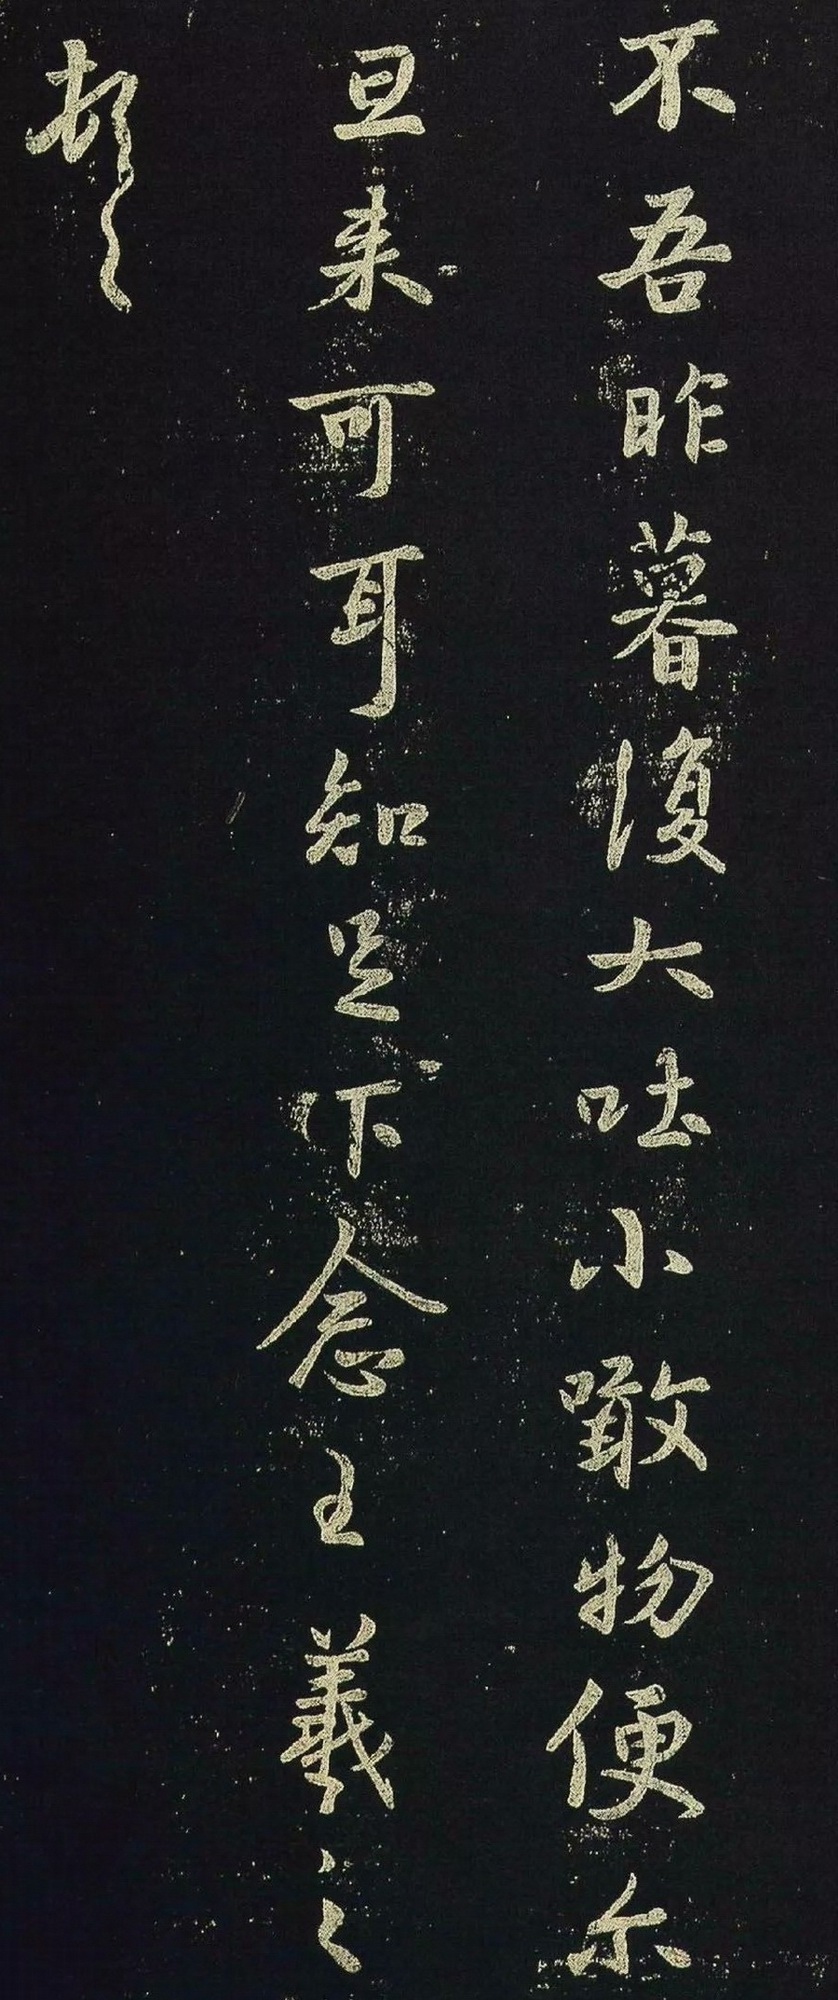 不吾昨暮復大吐小噉物便尔
旦来可耳知足下念王羲之
頓首